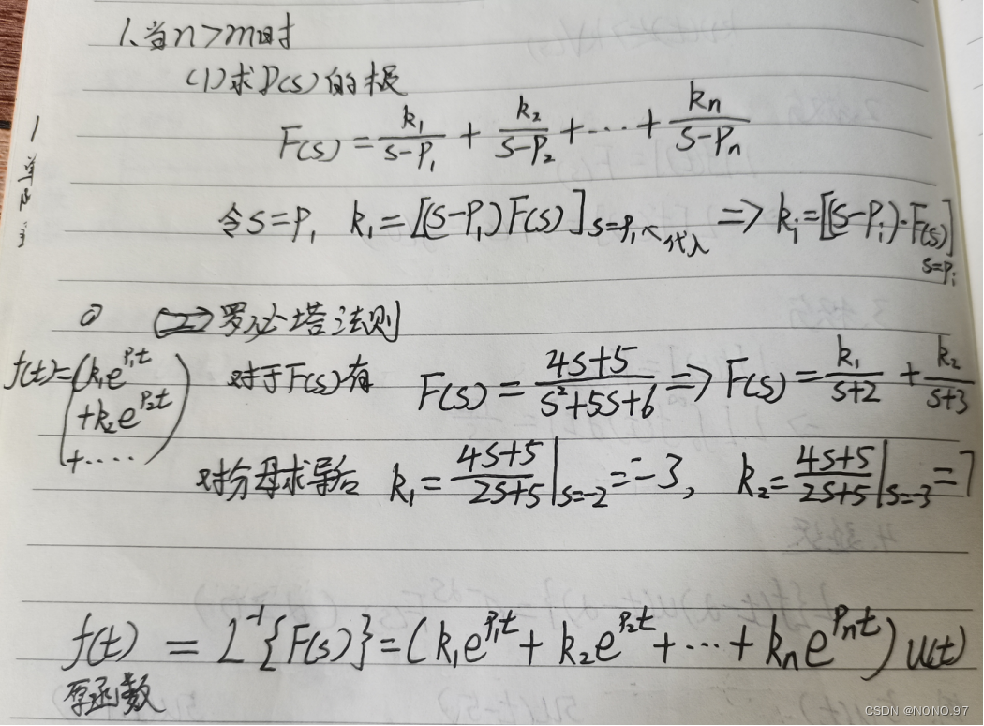 1.当n>m时
(1)求D(s)的根
F(s) = k₁/(s-P₁) + k₂/(s-P₂) + ‥‥ + kn/(s-Pn)
令s=P₁ k₁=[(s-P₁)F(s)]s=P₁ 代入 => ki=[(s-Pi)·F(s)]s=Pi
1 单
罗必塔法则
f(t)=(k₁e^P₁t +k₂e^P₂t +····)
对于F(s)有 F(s) = (4s+5)/(s²+5s+6) => F(s) = k₁/(s+2) + k₂/(s+3)
对分母求导后 k₁ = (4s+5)/(2s+5)|s=-2 = -3, k₂ = (4s+5)/(2s+5)|s=-3 = 7
f(t) = L⁻¹{F(s)} = (k₁e^P₁t + k₂e^P₂t + ··· + kne^Pnt) u(t)
原函数
CSDN @NONO.97